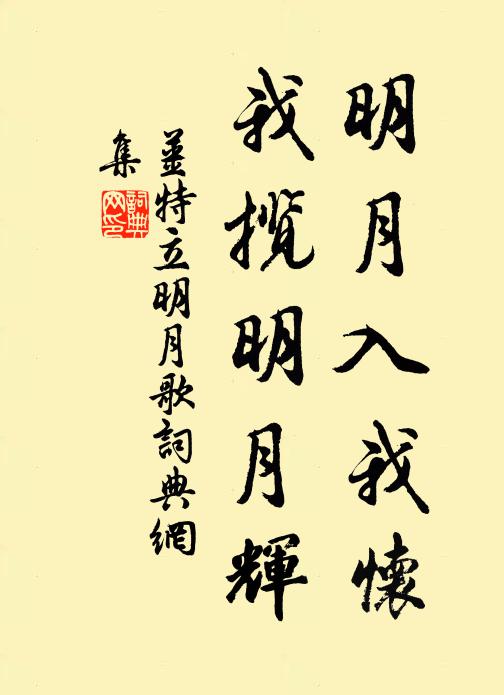 明月入我懷
我攬明月輝
姜特立明月歌詞典網
集
詞典網印